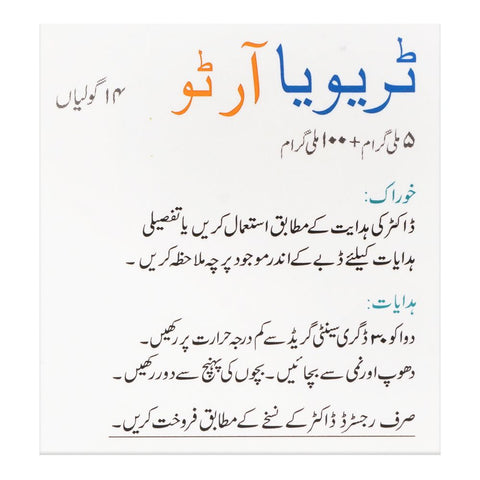 ٹریویا آر ٹو ۱۴ گولیاں
۵ ملی گرام + ۱۰۰ ملی گرام
خوراک:
ڈاکٹر کی ہدایت کے مطابق استعمال کریں یا تفصیلی
ہدایات کیلئے ڈبے کے اندر موجود پرچہ ملاحظہ کریں ۔
ہدایات:
دوا کو ۳۰ ڈگری سینٹی گریڈ سے کم درجہ حرارت پر رکھیں۔
دھوپ اور نمی سے بچائیں ۔ بچوں کی پہنچ سے دور رکھیں ۔
صرف رجسٹرڈ ڈاکٹر کے نسخے کے مطابق فروخت کریں۔